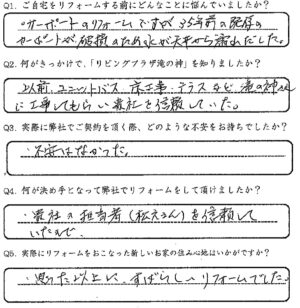 Q1. ご自宅をリフォームする前にどんなことに悩んでいましたか?
・カーポートのリフォームですが35年前の既存の
カーポートが破損のため水が天井から漏れだした。
Q2. 何がきっかけで、「リビングプラザ滝の神」を知りましたか?
以前、ユニットバス、床工事、テラスなど、滝の神さん
に工事してもらい貴社を信頼していた。
Q3. 実際に弊社でご契約を頂く際、どのような不安をお持ちでしたか?
・不安はなかった。
Q4. 何が決め手となって弊社でリフォームをして頂けましたか?
・貴社の担当者(松元さん)を信頼して
いたので。
Q5. 実際にリフォームをおこなった新しいお家の住み心地はいかがですか?
・思った以上に、すばらしいリフォームでした。